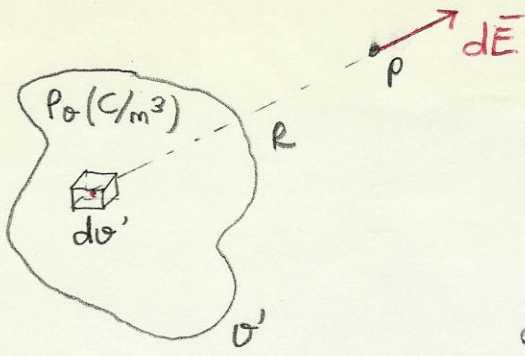 dE̅
P
ρ𝑣 (C/m³)
R
d𝑣'
𝑣'